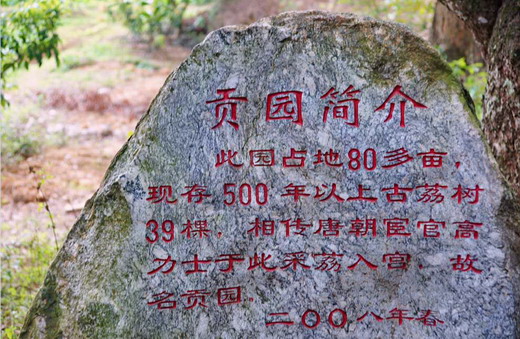 贡园简介
此园占地80多亩，
现存500年以上古荔树
39棵，相传唐朝宦官高
力士于此采荔入宫，故
名贡园。
二〇〇八年春